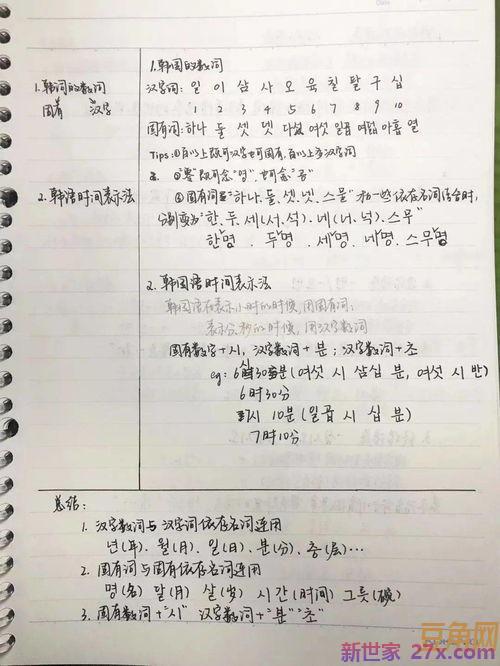 1. 韩国的数词
1. 韩词的数词
汉字词: 일 이 삼 사 오 육 칠 팔 구 십
固有 汉字
1 2 3 4 5 6 7 8 9 10
固有词: 하나 둘 셋 넷 다섯 여섯 일곱 여덟 아홉 열
Tips: ①百以上既可汉字也可固有, 百以上为汉字词
②"零"既可念"영", 也可念"공"
2. 韩语时间表示法
③固有词在"하나, 둘, 셋, 넷, 스물"和一些依存名词结合时,
分别变为"한, 두, 세(서, 석), 네(너, 넉), 스무"
한명, 두명, 세명, 네명, 스무명
2. 韩国语时间表示法
韩国语在表示小时的时候, 用固有词;
表示分,秒的时候, 用汉字数词
固有数字+시, 汉字数词+분; 汉字数词+초
eg: 6시30분(여섯 시 삼십 분, 여섯 시 반)
6时30分
시 10분(일곱 시 십 분)
7时10分
总结:
1. 汉字数词与汉字词依存名词连用
년(年), 월(月), 일(日), 분(分), 층(层)…
2. 固有词与固有依存名词连用
명(名) 달(月) 살(岁) 시간(时间) 그릇(碗)
3. 固有数词+"시" 汉字数词+"분""초"
豆角网
新世家 27x.com